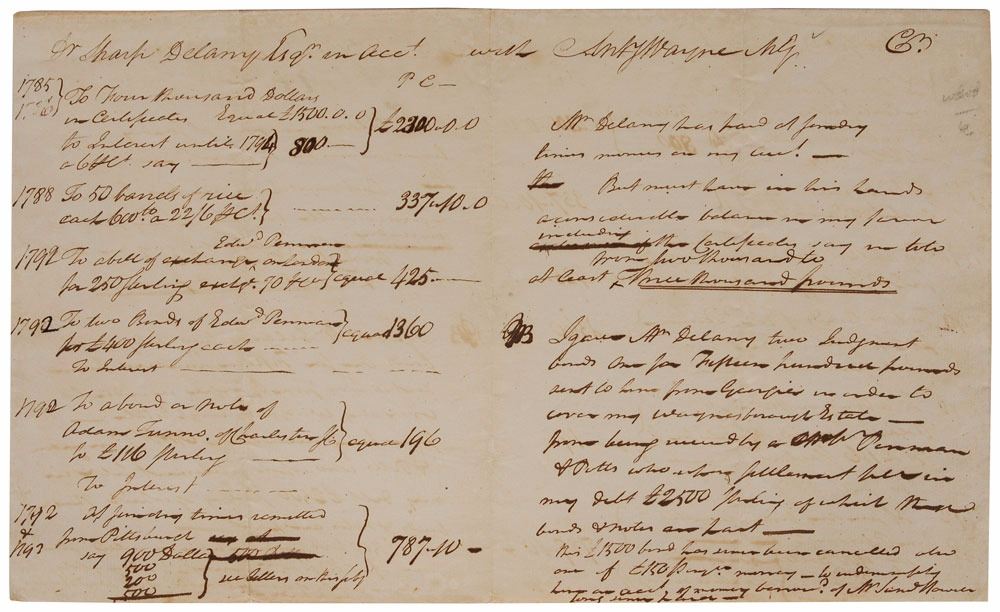 Dr Sharp Delany Esqr. in acct. with Anty Wayne Esqr Cr.
1785
1786
To Four thousand Dollars
in Certificates Equal £1500.0.0
to Interest until 1794 800
a 6 ⅌Ct. say
£2300.0.0
1788 To 50 barrels of rice
each 600 lb a 22/6 ⅌Ct. 337.10.0
Edwd Penman
1792 To a bill of exchange on London
for 250 sterling exche. 70 ⅌Ct equal 425
1792 To two Bonds of Edwd. Penman
for £400 sterling each equal 1360
To Interest
1792 To a bond or Note of
Adam Tunno of Charleston
for £116 sterling equal 196
To Interest
1792
&
1793
At sundry times remitted
from Pittsburgh
say 900 Dollars
500
200
500
see letters on this subj
787.10
Mr Delany has paid at sundry
times monies on my acct.
But must have in his hands
a considerable balance in my favor
including
the Certificates say in toto
from two thousand to
at least £three thousand pounds
NB I gave Mr Delany two Judgment
bonds one for Fifteen hundred pounds
sent to him from Georgia in order to
cover my Waynesborough Estate
from being seized by a Penman
& Potts who whose settlement fell in
my debt £2500 sterling of which these
bonds & notes are part
this £1500 bond has since been cancelled also
one of £150 money to indemnify
him on acct. of money borrowd. of Mr Saml
long since